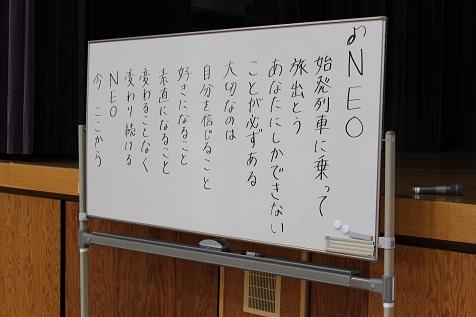 ♪NEO
始発列車に乗って
旅出とう
あなたにしかできない
ことが必ずある
大切なのは
自分を信じること
好きになること
素直になること
変わることなく
変わり続ける
NEO
今 ここから